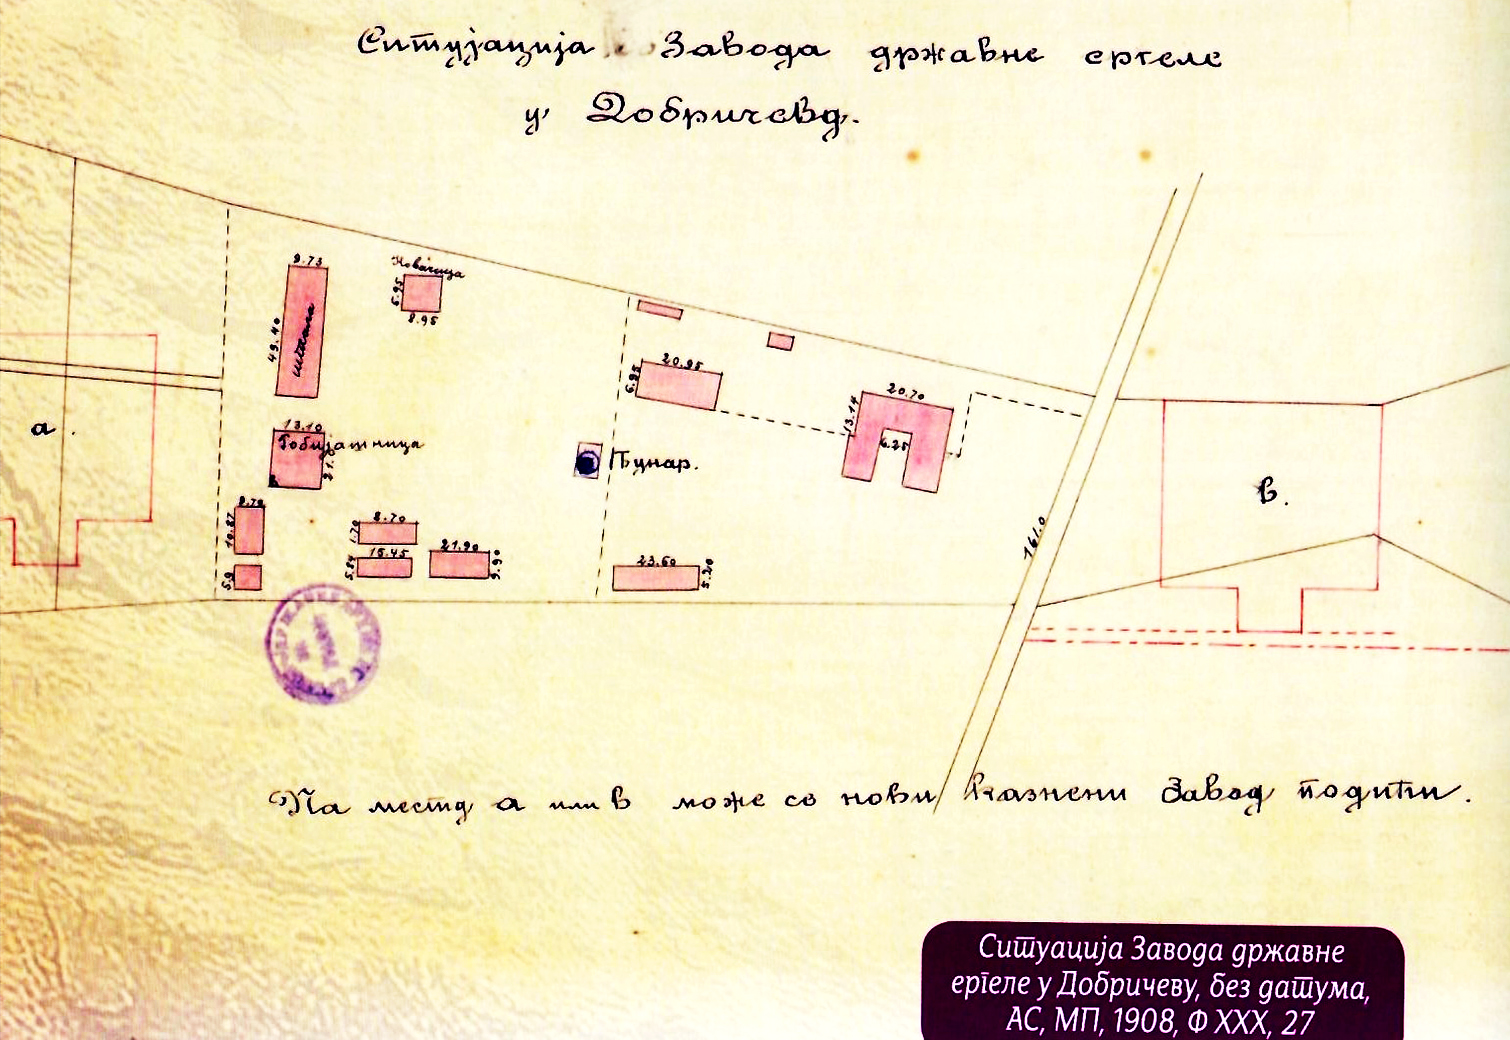 Ситујација Завода државне ергеле
у Добричеву.
9.73
Ковачница
5.95
8.95
49.40
штала
20.95
6.95
20.70
13.14
6.25
а.
13.10
Бунар.
в.
8.70
10.87
8.70
1.70
15.45
21.90
9.90
5.84
5.9
23.60
5.20
161.0
На месту а или в може се нови казнени Завод подићи.
Ситуација Завода државне
ергеле у Добричеву, без датума,
АС, МП, 1908, Ф XXX, 27